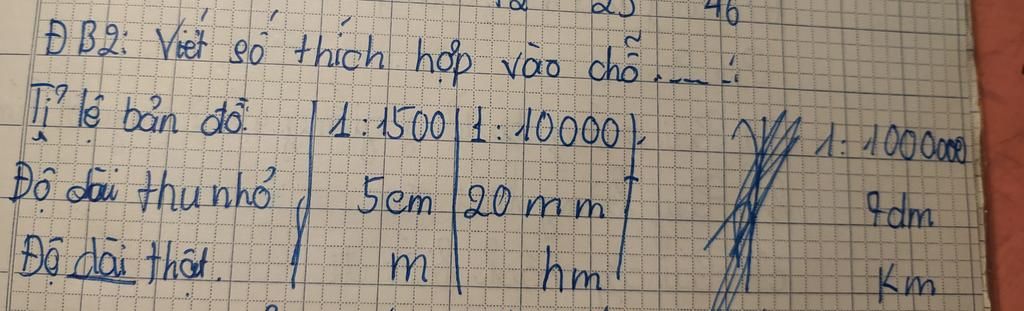 12 25 46
ĐB2: Viết số thích hợp vào chỗ.....:
Tỉ lệ bản đồ 1:1500 1:10000 1:1000000
Độ dài thu nhỏ 5cm 20mm 9dm
Độ dài thật. m hm Km